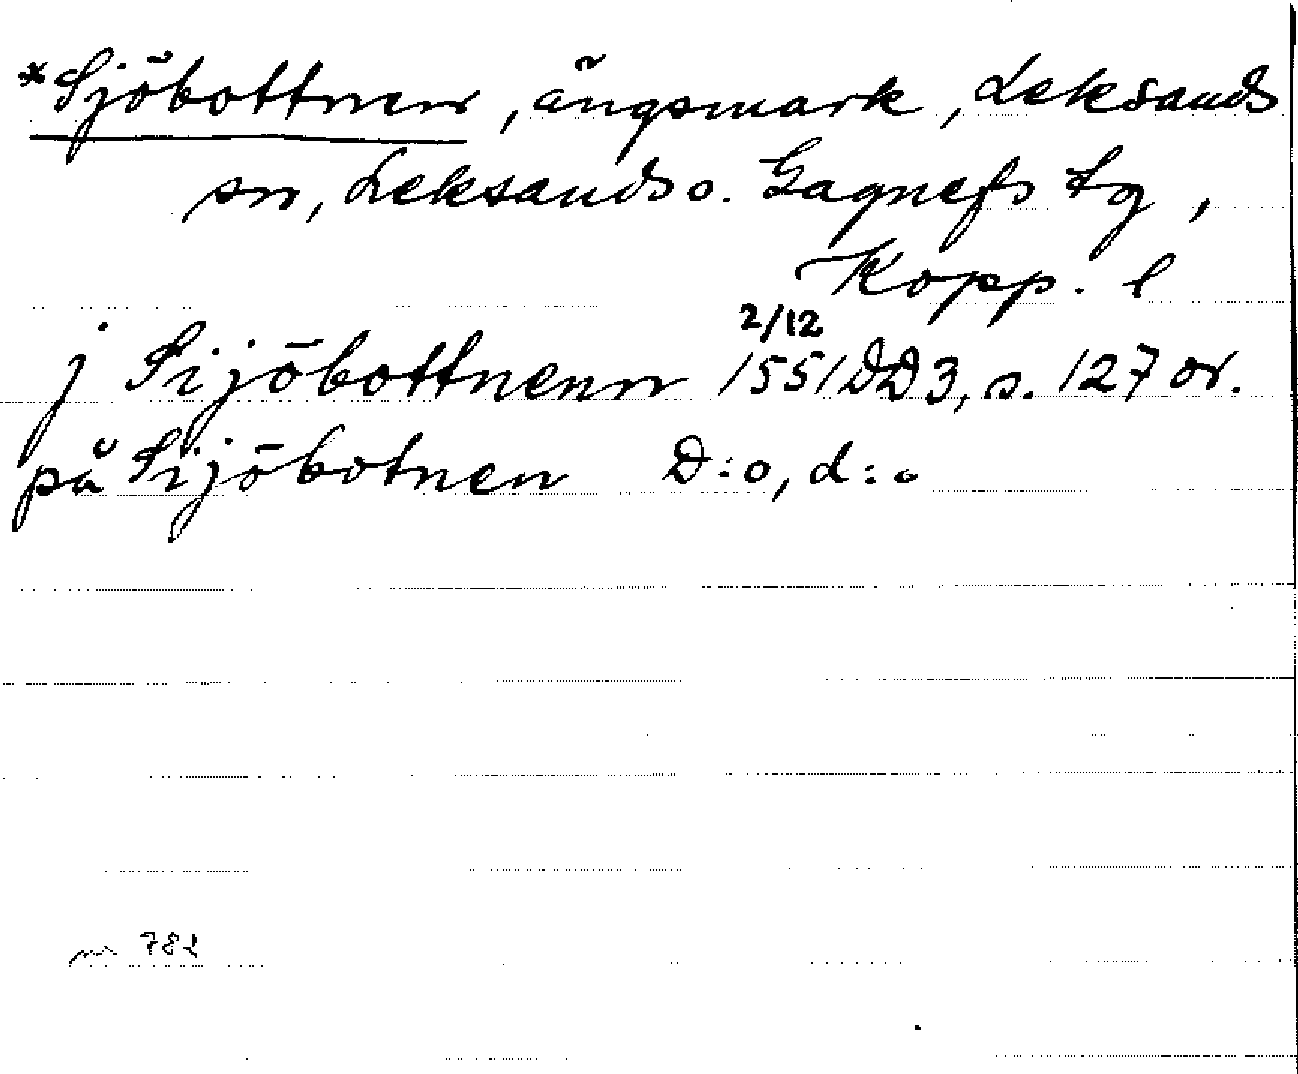 *Sjöbottnen, ängsmark, Leksands
sn, Leksands o. Gagnefs tg,
Kopp. l
2/12
j Sijöbottnenn 1551 DD3, s. 127 or.
på Sijöbotnen D:o, d:o
782